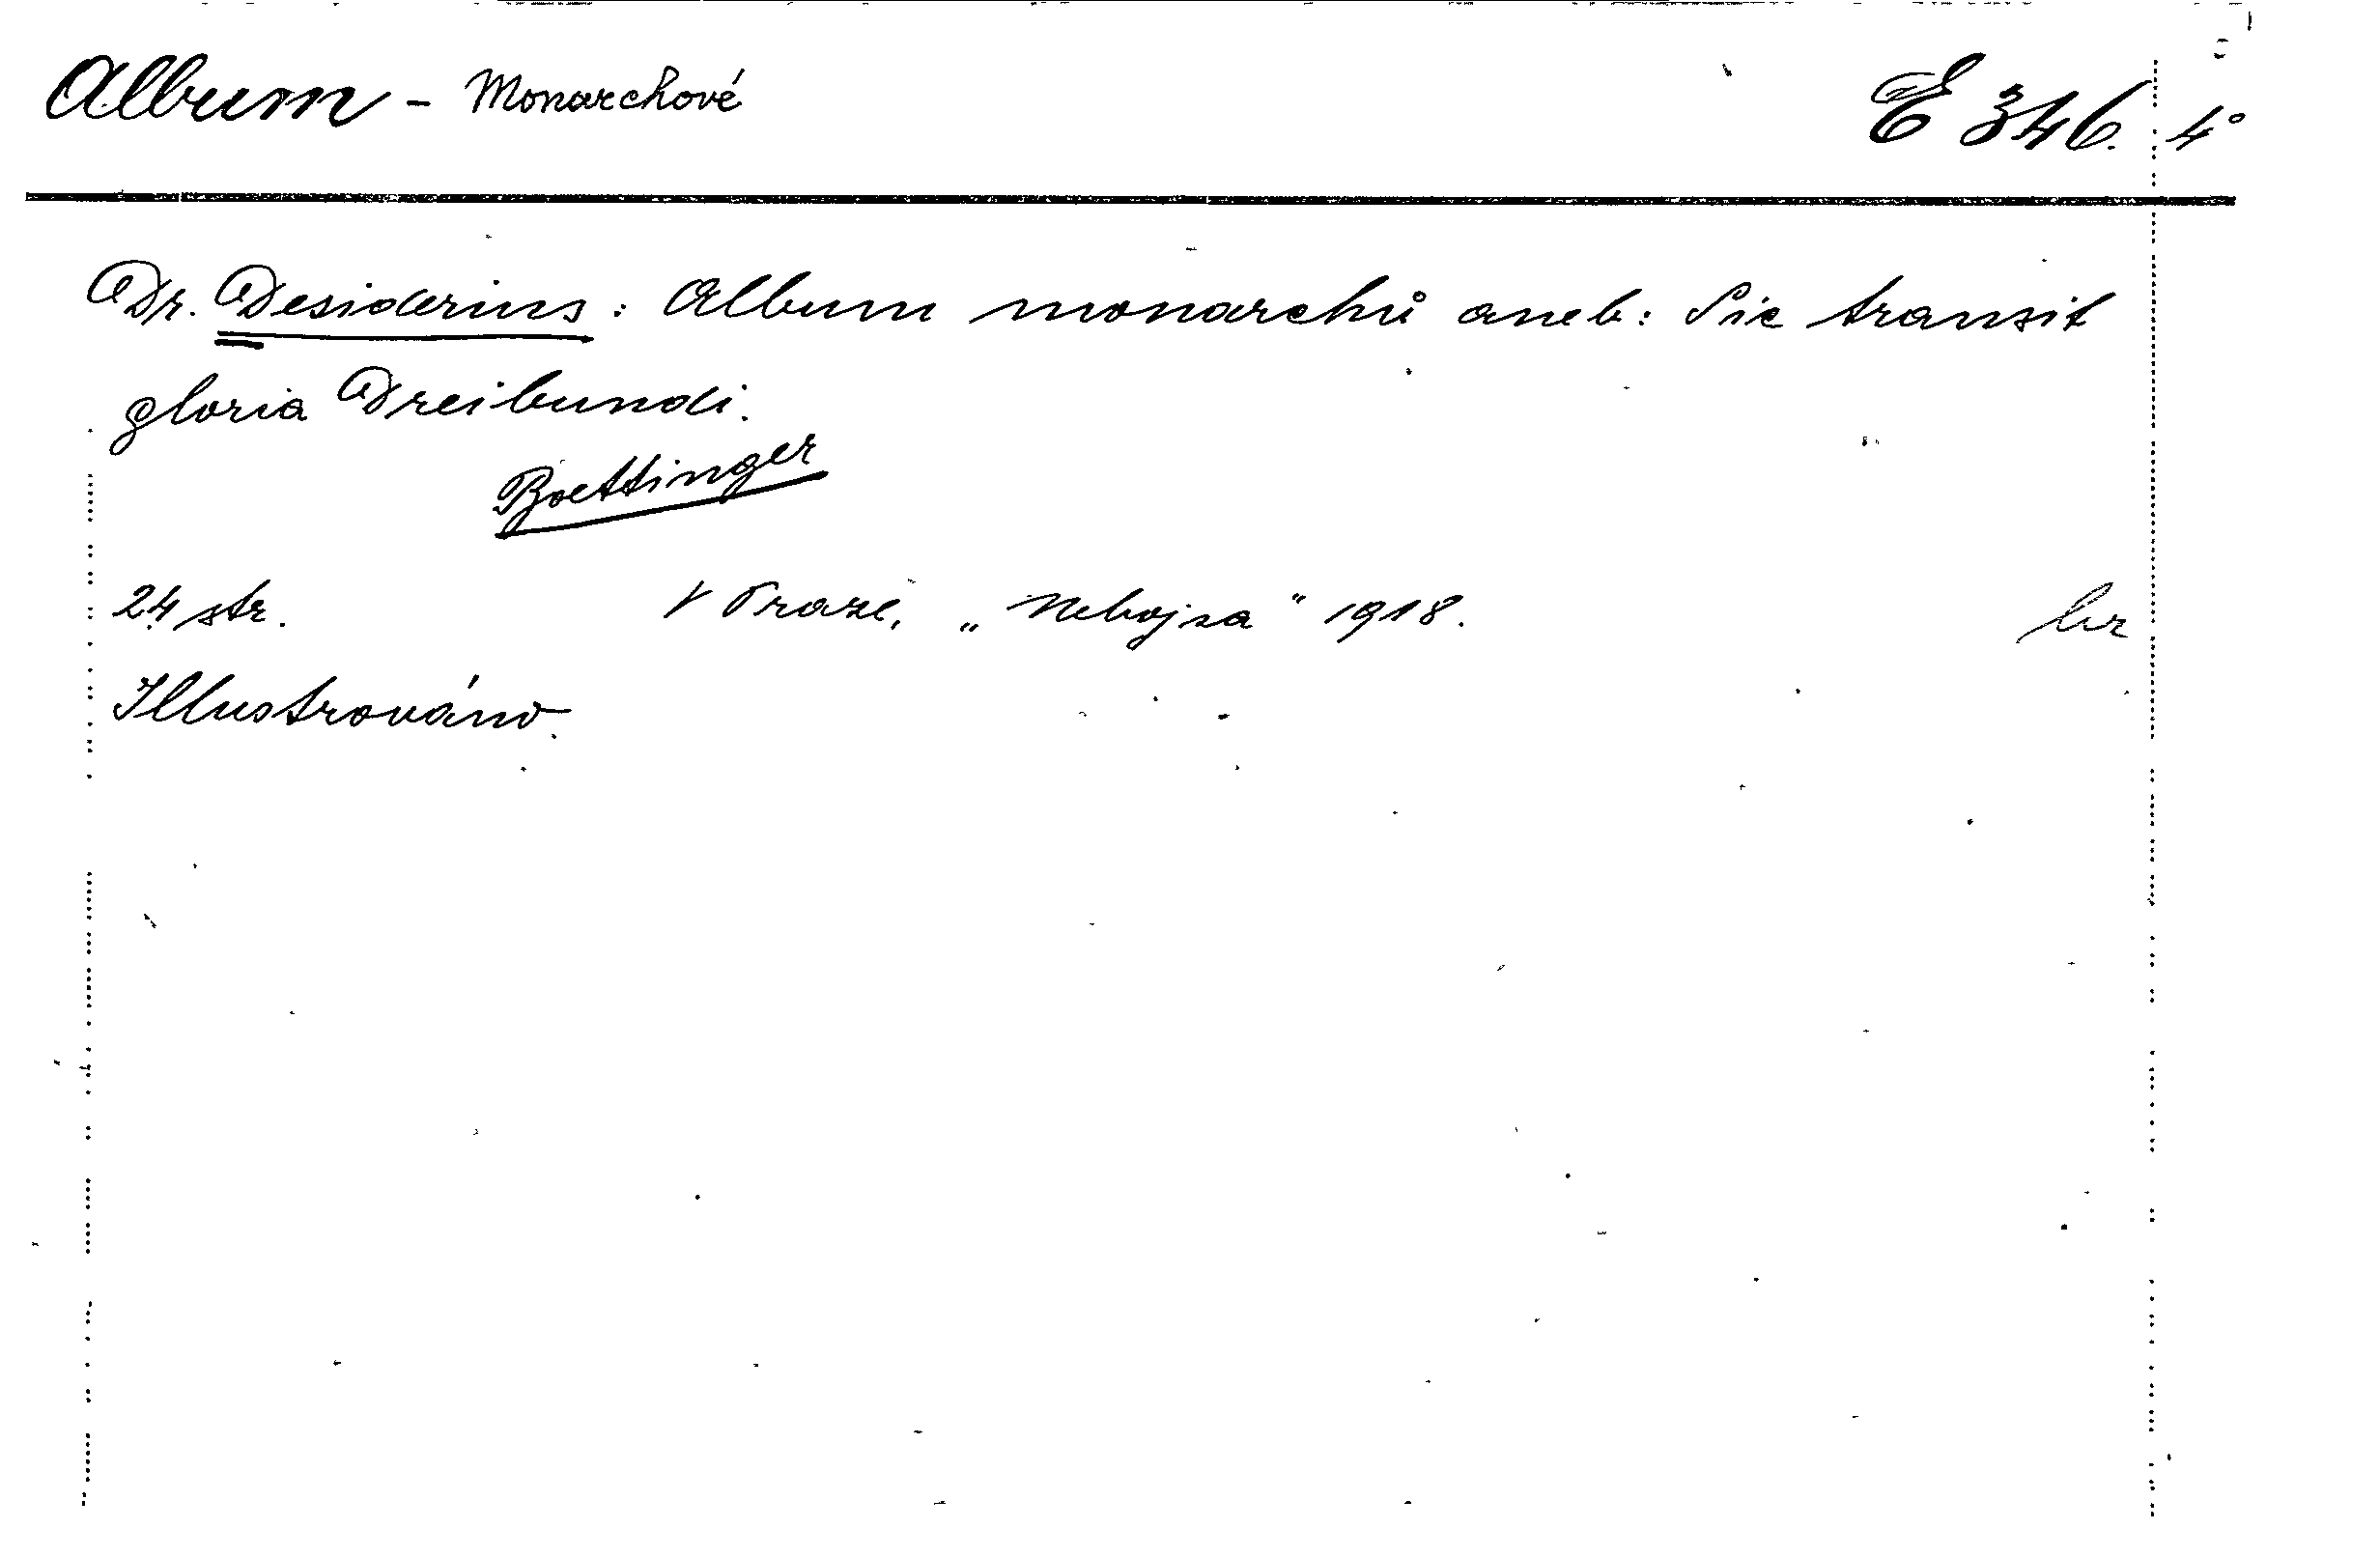 Album - Monarchové E 346. 4°
Dr. Desiderius: Album monarchů aneb: Sic transit
gloria Dreibundi.
Boettinger
24 str. V Praze, „Nebojsa" 1918. br
Illustrováno.